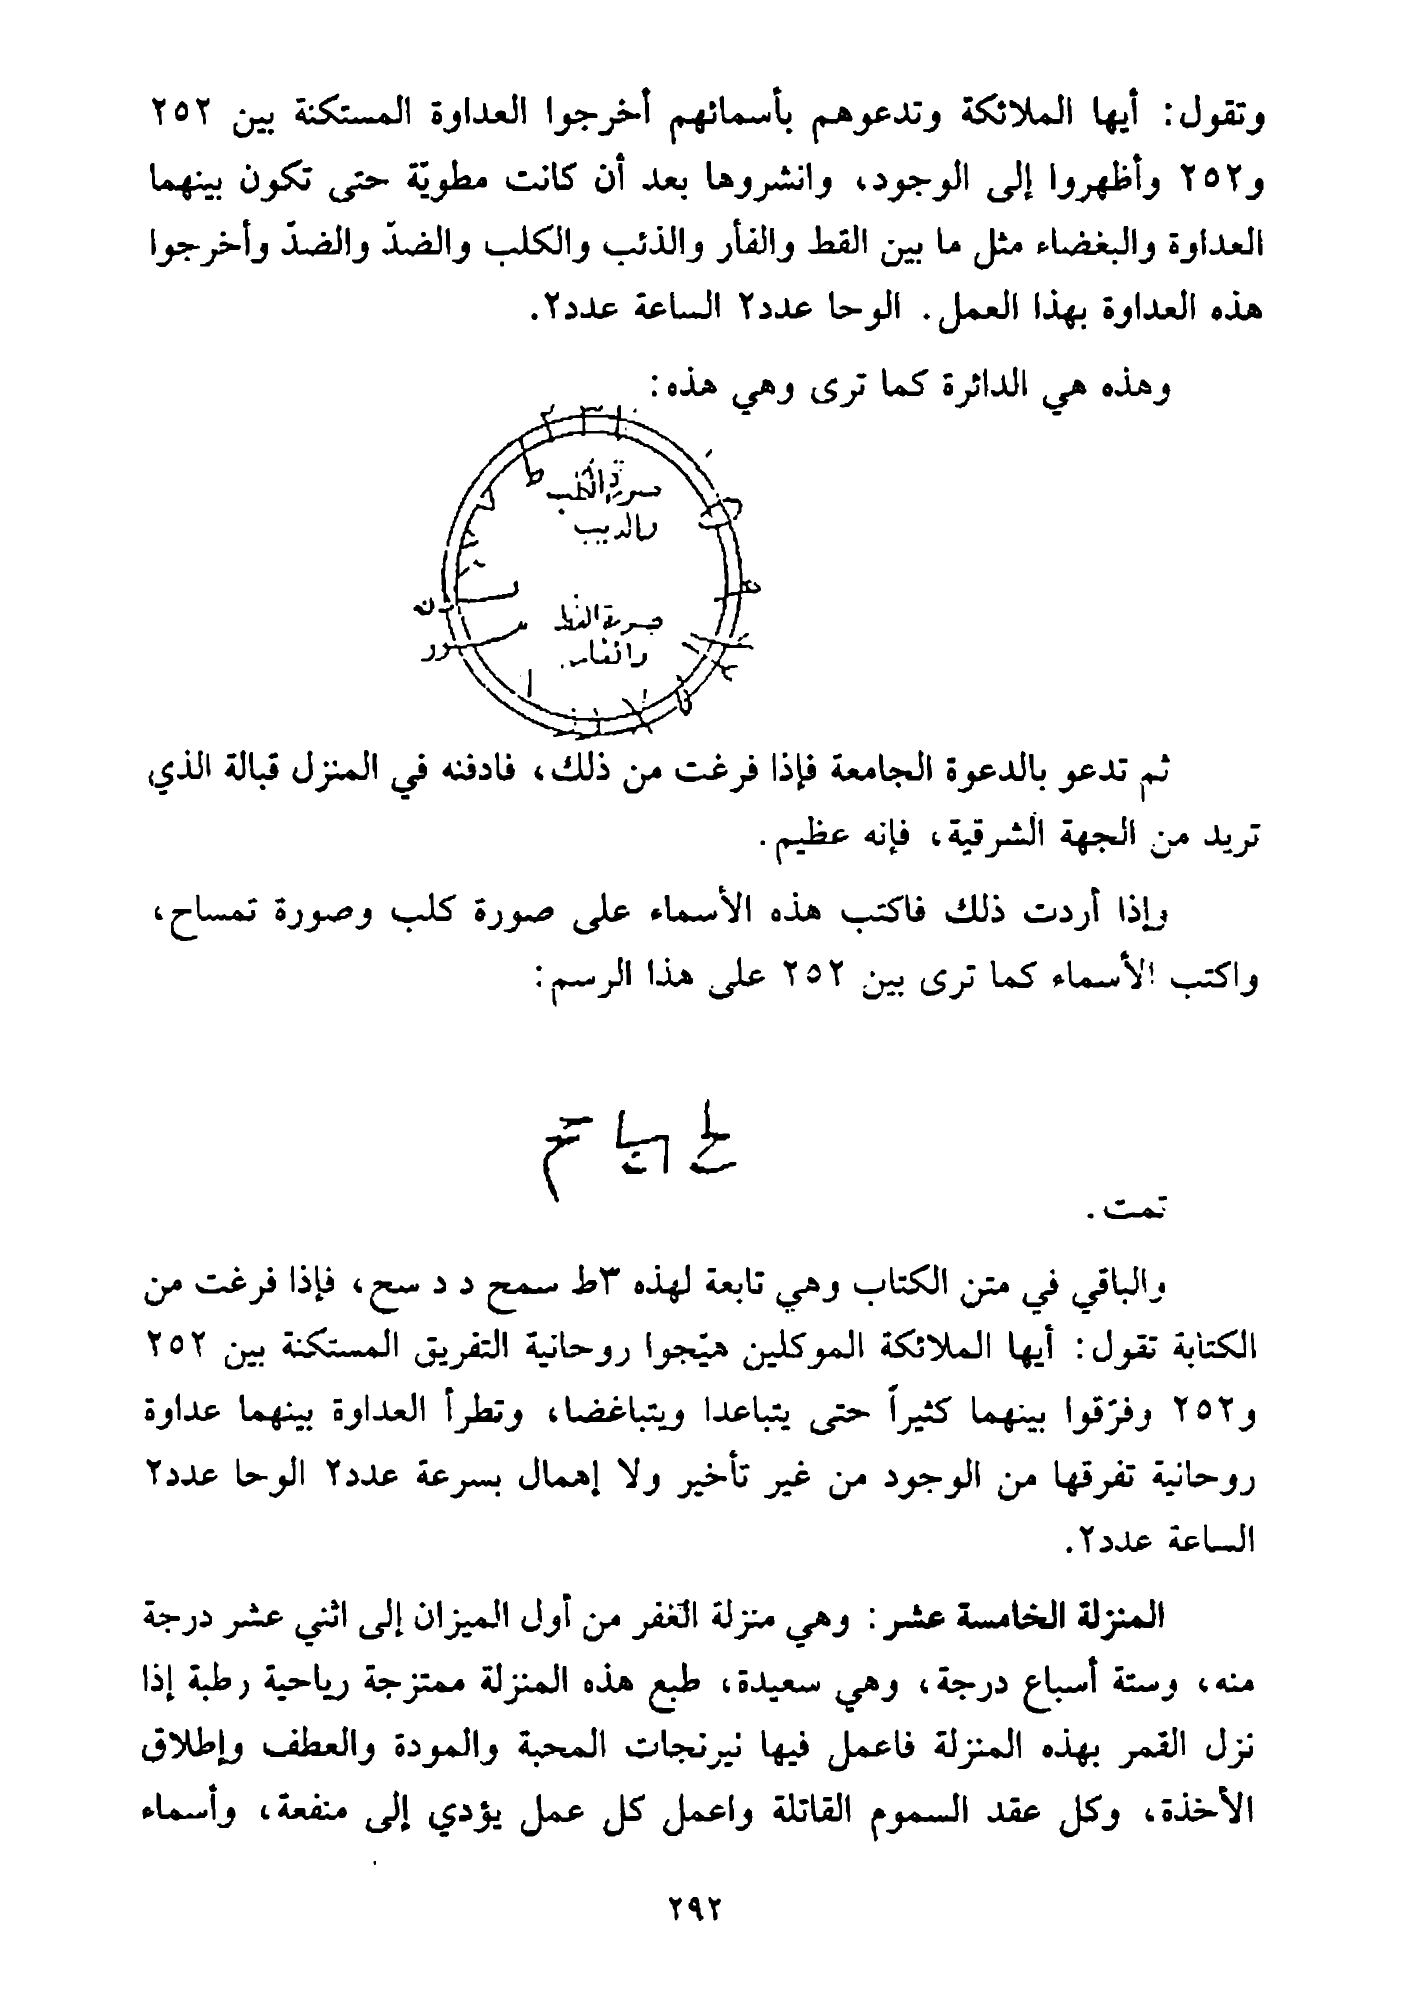 وتقول: أيها الملائكة وتدعوهم بأسمائهم أخرجوا العداوة المستكنة بين ٢٥٢
و٢٥٢ وأظهروا إلى الوجود، وانشروها بعد أن كانت مطويّة حتى تكون بينهما
العداوة والبغضاء مثل ما بين القط والفأر والذئب والكلب والضدّ والضدّ وأخرجوا
هذه العداوة بهذا العمل. الوحا عدد٢ الساعة عدد٢.
وهذه هي الدائرة كما ترى وهي هذه:
صورة الكلب
والديب
صورة القط
والفار
ثم تدعو بالدعوة الجامعة فإذا فرغت من ذلك، فادفنه في المنزل قبالة الذي
تريد من الجهة الشرقية، فإنه عظيم.
وإذا أردت ذلك فاكتب هذه الأسماء على صورة كلب وصورة تمساح،
واكتب الأسماء كما ترى بين ٢٥٢ على هذا الرسم:
تمت.
والباقي في متن الكتاب وهي تابعة لهذه ٣ط سمح د د سح، فإذا فرغت من
الكتابة تقول: أيها الملائكة الموكلين هيّجوا روحانية التفريق المستكنة بين ٢٥٢
و٢٥٢ وفرّقوا بينهما كثيراً حتى يتباعدا ويتباغضا، وتطرأ العداوة بينهما عداوة
روحانية تفرقها من الوجود من غير تأخير ولا إهمال بسرعة عدد٢ الوحا عدد٢
الساعة عدد٢.
المنزلة الخامسة عشر: وهي منزلة الغفر من أول الميزان إلى اثني عشر درجة
منه، وستة أسباع درجة، وهي سعيدة، طبع هذه المنزلة ممتزجة رياحية رطبة إذا
نزل القمر بهذه المنزلة فاعمل فيها نيرنجات المحبة والمودة والعطف وإطلاق
الأخذة، وكل عقد السموم القاتلة واعمل كل عمل يؤدي إلى منفعة، وأسماء
٢٩٢